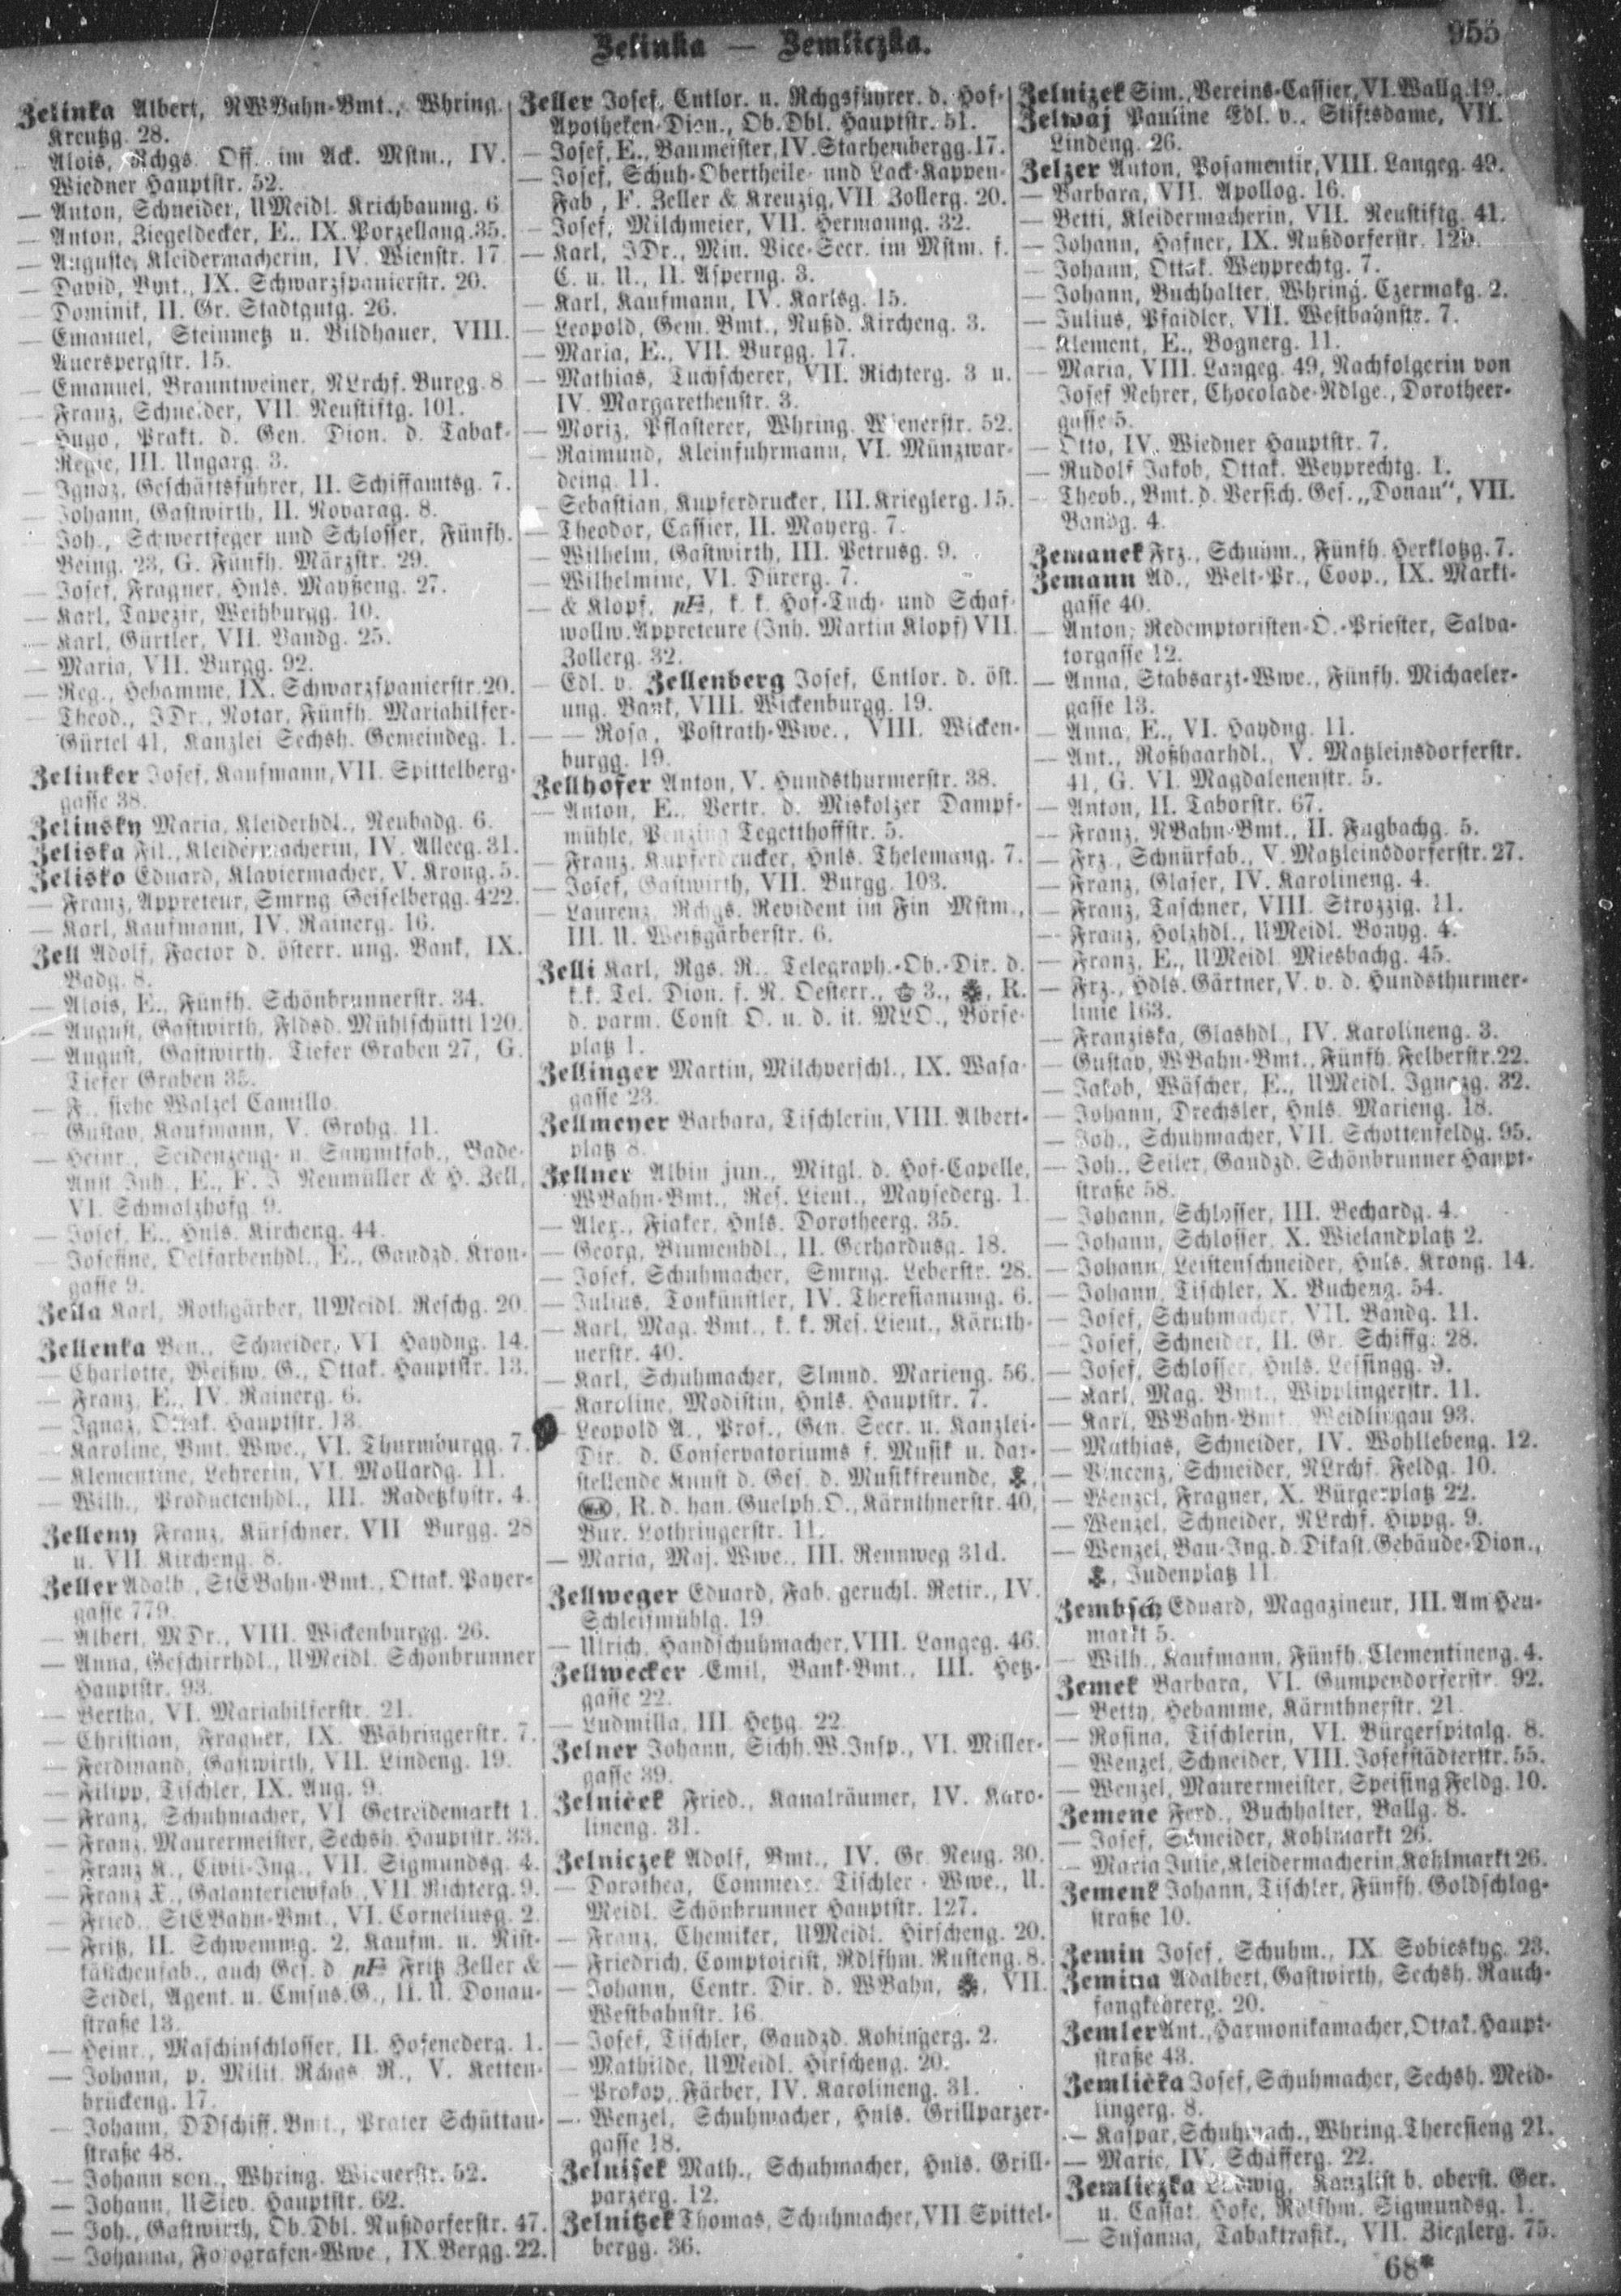 Zelinka — Zemliczka.
955
Zelinka Albert, NWBahn-Bmt., Whring.
Kreutzg. 28.
— Alois, Rchgs. Off. im Ack. Mstm., IV.
Wiedner Hauptstr. 52.
— Anton, Schneider, UMeidl. Krichbaumg. 6
— Anton, Ziegeldecker, E., IX. Porzellang. 35.
— Auguste, Kleidermacherin, IV. Wienstr. 17
— David, Bmt., IX. Schwarzspanierstr. 20.
— Dominik, II. Gr. Stadtgutg. 26.
— Emanuel, Steinmetz u. Bildhauer, VIII.
Auerspergstr. 15.
— Emanuel, Brauntweiner, NLrchf. Burgg. 8
— Franz, Schneider, VII. Neustiftg. 101.
— Hugo, Prakt. d. Gen. Dion. d. Tabak-
Regie, III. Ungarg. 3.
— Ignaz, Geschäftsführer, II. Schiffamtsg. 7.
— Johann, Gastwirth, II. Novarag. 8.
— Joh., Schwertfeger und Schlosser, Fünfh.
Being. 23, G. Fünfh. Märzstr. 29.
— Josef, Fragner, Hnls. Mayßeng. 27.
— Karl, Tapezir, Weihburgg. 10.
— Karl, Gürtler, VII. Bandg. 25.
— Maria, VII. Burgg. 92.
— Reg., Hebamme, IX. Schwarzspanierstr. 20.
— Theod., JDr., Notar, Fünfh. Mariahilfer-
Gürtel 41, Kanzlei Sechsh. Gemeindeg. 1.
Zelinker Josef, Kaufmann, VII. Spittelberg-
gasse 38.
Zelinsky Maria, Kleiderhdl., Neubadg. 6.
Zeliska Fil., Kleidermacherin, IV. Alleeg. 31.
Zelisko Eduard, Klaviermacher, V. Krong. 5.
— Franz, Appreteur, Smrng Geiselbergg. 422.
— Karl, Kaufmann, IV. Rainerg. 16.
Zell Adolf, Factor d. österr. ung. Bank, IX.
Badg. 8.
— Alois, E., Fünfh. Schönbrunnerstr. 34.
— August, Gastwirth, Fldsd. Mühlschüttl 120.
— August, Gastwirth, Tiefer Graben 27, G.
Tiefer Graben 35.
— F., siehe Walzel Camillo.
— Gustav, Kaufmann, V. Grohg. 11.
— Heinr., Seidenzeug- u. Sammtfab., Bade-
Anst Inh., E., F. J Neumüller & H. Zell,
VI. Schmalzhofg. 9.
— Josef, E., Hnls. Kircheng. 44.
— Josefine, Oelfarbenhdl., E., Gaudzd. Kron-
gasse 9.
Zella Karl, Rothgärber, UMeidl. Reschg. 20.
Zellenka Ben., Schneider, VI Haydng. 14.
— Charlotte, Weißw. G., Ottak. Hauptstr. 13.
— Franz, E., IV. Rainerg. 6.
— Ignaz, Ottak. Hauptstr. 13.
— Karoline, Bmt. Wwe., VI. Thurmburgg. 7.
— Klementine, Lehrerin, VI. Mollardg. 11.
— Wilh., Productenhdl., III. Radetzkystr. 4.
Zelleny Franz, Kürschner, VII Burgg. 28
u. VII. Kircheng. 8.
Zeller Adalb., StEBahn-Bmt., Ottak. Payer-
gasse 779.
— Albert, MDr., VIII. Wickenburgg. 26.
— Anna, Geschirrhdl., UMeidl. Schönbrunner
Hauptstr. 93.
— Bertha, VI. Mariahilferstr. 21.
— Christian, Fragner, IX. Währingerstr. 7.
— Ferdinand, Gastwirth, VII. Lindeng. 19.
— Filipp, Tischler, IX. Aug. 9.
— Franz, Schuhmacher, VI Getreidemarkt 1.
— Franz, Maurermeister, Sechsh. Hauptstr. 33.
— Franz K., Civil-Ing., VII. Sigmundsg. 4.
— Franz X., Galanteriewfab., VII. Richterg. 9.
— Fried., StEBahn-Bmt., VI. Corneliusg. 2.
— Fritz, II. Schwemmg. 2, Kaufm. u. Kist-
kästchenfab., auch Ges. d. Fritz Zeller &
Seidel, Agent. u. Cmsns.G., II. U. Donau-
straße 13.
— Heinr., Maschinschlosser, II. Hofenederg. 1.
— Johann, p. Milit. Rchgs R., V. Ketten-
brückeng. 17.
— Johann, DDschiff. Bmt., Prater Schüttau-
straße 48.
— Johann sen., Whring. Wienerstr. 52.
— Johann, USiev. Hauptstr. 62.
— Joh., Gastwirth, Ob.Dbl. Nußdorferstr. 47.
— Johanna, Fotografen-Wwe., IX. Bergg. 22.
Zeller Josef, Cntlor. u. Rchgsführer. d. Hof-
Apotheken-Dion., Ob.Dbl. Hauptstr. 51.
— Josef, E., Baumeister, IV. Starhembergg. 17.
— Josef, Schuh-Obertheile- und Lack-Kappen-
Fab., F. Zeller & Kreuzig, VII Zollerg. 20.
— Josef, Milchmeier, VII. Hermanng. 32.
— Karl, JDr., Min. Vice-Secr. im Mstm. f.
C. u. U., II. Asperng. 3.
— Karl, Kaufmann, IV. Karlsg. 15.
— Leopold, Gem. Bmt., Nußd. Kircheng. 3.
— Maria, E., VII. Burgg. 17.
— Mathias, Tuchscherer, VII. Richterg. 3 u.
IV. Margarethenstr. 3.
— Moriz, Pflasterer, Whring. Wienerstr. 52.
— Raimund, Kleinfuhrmann, VI. Münzwar-
deing. 11.
— Sebastian, Kupferdrucker, III. Krieglerg. 15.
— Theodor, Cassier, II. Mayerg. 7.
— Wilhelm, Gastwirth, III. Petrusg. 9.
— Wilhelmine, VI. Dürerg. 7.
— & Klopf, k. k. Hof-Tuch- und Schaf-
wollw. Appreteure (Inh. Martin Klopf) VII.
Zollerg. 32.
— Edl. v. Zellenberg Josef, Cntlor. d. öst.
ung. Bank, VIII. Wickenburgg. 19.
— — Rosa, Postrath-Wwe., VIII. Wicken-
burgg. 19.
Zellhofer Anton, V. Hundsthurmerstr. 38.
— Anton, E., Vertr. d. Miskolzer Dampf-
mühle, Penzing Tegetthoffstr. 5.
— Franz, Kupferdrucker, Hnls. Thelemang. 7.
— Josef, Gastwirth, VII. Burgg. 103.
— Laurenz, Rchgs. Revident im Fin Mstm.,
III. U. Weißgärberstr. 6.
Zelli Karl, Rgs. R., Telegraph.-Ob.-Dir. d.
k.k. Tel. Dion. f. N. Oesterr., 3., R.
d. parm. Const O. u. d. it. MLO., Börse-
platz 1.
Zellinger Martin, Milchverschl., IX. Wasa-
gasse 23.
Zellmeyer Barbara, Tischlerin, VIII. Albert-
platz 8.
Zellner Albin jun., Mitgl. d. Hof-Capelle,
WBahn-Bmt., Res. Lieut., Maysederg. 1.
— Alex., Fiaker, Hnls. Dorotheerg. 35.
— Georg, Blumenhdl., II. Gerhardusg. 18.
— Josef, Schuhmacher, Smrng. Leberstr. 28.
— Julius, Tonkünstler, IV. Theresianumg. 6.
— Karl, Mag. Bmt., k. k. Res. Lieut., Kärnth-
nerstr. 40.
— Karl, Schuhmacher, Slmnd. Marieng. 56.
— Karoline, Modistin, Hnls. Hauptstr. 7.
— Leopold A., Prof., Gen. Secr. u. Kanzlei-
Dir. d. Conservatoriums f. Musik u. dar-
stellende Kunst d. Ges. d. Musikfreunde,
R. d. han. Guelph. O., Kärnthnerstr. 40,
Bur. Lothringerstr. 11.
— Maria, Maj. Wwe., III. Rennweg 31d.
Zellweger Eduard, Fab. geruchl. Retir., IV.
Schleifmühlg. 19
— Ulrich, Handschuhmacher, VIII. Langeg. 46.
Zellwecker Emil, Bank-Bmt., III. Hetz-
gasse 22.
— Ludmilla, III. Hetzg. 22.
Zelner Johann, Sichh.W.Insp., VI. Miller-
gasse 39.
Zelniček Fried., Kanalräumer, IV. Karo-
lineng. 31.
Zelniczek Adolf, Bmt., IV. Gr. Neug. 30.
— Dorothea, Tischler-Wwe., U.
Meidl. Schönbrunner Hauptstr. 127.
— Franz, Chemiker, UMeidl. Hirscheng. 20.
— Friedrich, Comptoirist, Rdlfhm. Rusteng. 8.
— Johann, Centr. Dir. d. WBahn, VII.
Westbahnstr. 16.
— Josef, Tischler, Gaudzd. Kobingerg. 2.
— Mathilde, UMeidl. Hirscheng. 20.
— Prokop, Färber, IV. Karolineng. 31.
— Wenzel, Schuhmacher, Hnls. Grillparzer-
gasse 18.
Zelnisek Math., Schuhmacher, Hnls. Grill-
parzerg. 12.
Zelnitzek Thomas, Schuhmacher, VII Spittel-
bergg. 36.
Zelnizek Sim., Vereins-Cassier, VI. Wallg. 19.
Zelwaj Pauline Edl. v., Stiftsdame, VII.
Lindeng. 26.
Zelzer Anton, Posamentir, VIII. Langeg. 49.
— Barbara, VII. Apollog. 16.
— Betti, Kleidermacherin, VII. Neustiftg. 41.
— Johann, Hafner, IX. Nußdorferstr.
— Johann, Ottak. Weyprechtg. 7.
— Johann, Buchhalter, Whring. Czermakg. 2.
— Julius, Pfaidler, VII. Westbahnstr. 7.
— Klement, E., Bognerg. 11.
— Maria, VIII. Langeg. 49, Nachfolgerin von
Josef Rehrer, Chocolade-Ndlge., Dorotheer-
gasse 5.
— Otto, IV. Wiedner Hauptstr. 7.
— Rudolf Jakob, Ottak. Weyprechtg. 1.
— Theob., Bmt. d. Versich. Ges. „Donau“, VII.
Bandg. 4.
Zemanek Frz., Schuhm., Fünfh. Herklotzg. 7.
Zemann Ad., Welt-Pr., Coop., IX. Markt-
gasse 40.
— Anton, Redemptoristen-O.-Priester, Salva-
torgasse 12.
— Anna, Stabsarzt-Wwe., Fünfh. Michaeler-
gasse 13.
— Anna, E., VI. Haydng. 11.
— Ant., Roßhaarhdl., V. Matzleinsdorferstr.
41, G. VI. Magdalenenstr. 5.
— Anton, II. Taborstr. 67.
— Franz, NBahn-Bmt., II. Fugbachg. 5.
— Frz., Schnürfab., V. Matzleinsdorferstr. 27.
— Franz, Glaser, IV. Karolineng. 4.
— Franz, Taschner, VIII. Strozzig. 11.
— Franz, Holzhdl., UMeidl. Bonyg. 4.
— Franz, E., UMeidl. Miesbachg. 45.
— Frz., Hdls. Gärtner, V. v. d. Hundsthurmer-
linie 163.
— Franziska, Glashdl., IV. Karolineng. 3.
— Gustav, WBahn-Bmt., Fünfh. Felberstr. 22.
— Jakob, Wäscher, E., UMeidl. Ignazg. 32.
— Johann, Drechsler, Hnls. Marieng. 18.
— Joh., Schuhmacher, VII. Schottenfeldg. 95.
— Joh., Seiler, Gaudzd. Schönbrunner Haupt-
straße 58.
— Johann, Schlosser, III. Bechardg. 4.
— Johann, Schlosser, X. Wielandplatz 2.
— Johann, Leistenschneider, Hnls. Krong. 14.
— Johann, Tischler, X. Bucheng. 54.
— Josef, Schuhmacher, VII. Bandg. 11.
— Josef, Schneider, II. Gr. Schiffg. 28.
— Josef, Schlosser, Hnls. Lessingg. 9.
— Karl, Mag. Bmt., Wipplingerstr. 11.
— Karl, WBahn-Bmt. Weidlingau 93.
— Mathias, Schneider, IV. Wohllebeng. 12.
— Vincenz, Schneider, NLrchf. Feldg. 10.
— Wenzel, Fragner, X. Bürgerplatz 22.
— Wenzel, Schneider, NLrchf. Hippg. 9.
— Wenzel, Bau-Ing. d. Dikast. Gebäude-Dion.,
Judenplatz 11.
Zembsch Eduard, Magazineur, III. Am Heu-
markt 5.
— Wilh., Kaufmann, Fünfh. Clementineng. 4.
Zemek Barbara, VI. Gumpendorferstr. 92.
— Betty, Hebamme, Kärnthnerstr. 21.
— Rosina, Tischlerin, VI. Bürgerspitalg. 8.
— Wenzel, Schneider, VIII. Josefstädterstr. 55.
— Wenzel, Maurermeister, Speising Feldg. 10.
Zemene Ferd., Buchhalter, Ballg. 8.
— Josef, Schneider, Kohlmarkt 26.
— Maria Julie, Kleidermacherin, Kohlmarkt 26.
Zemenk Johann, Tischler, Fünfh. Goldschlag-
straße 10.
Zemin Josef, Schuhm., IX Sobieskyg. 23.
Zemina Adalbert, Gastwirth, Sechsh. Rauch-
fangkehrerg. 20.
Zemler Ant., Harmonikamacher, Ottak. Haupt-
straße 43.
Zemlička Josef, Schuhmacher, Sechsh. Meid-
lingerg. 8.
— Kaspar, Schuhmach., Whring. Theresieng 21.
— Marie, IV. Schäfferg. 22.
Zemliczka Ludwig, Kanzlist b. oberst. Ger.
u. Cassat. Hofe, Rdlfhm. Sigmundsg. 1.
— Susanna, Tabaktrafik., VII. Zieglerg. 75.
68*